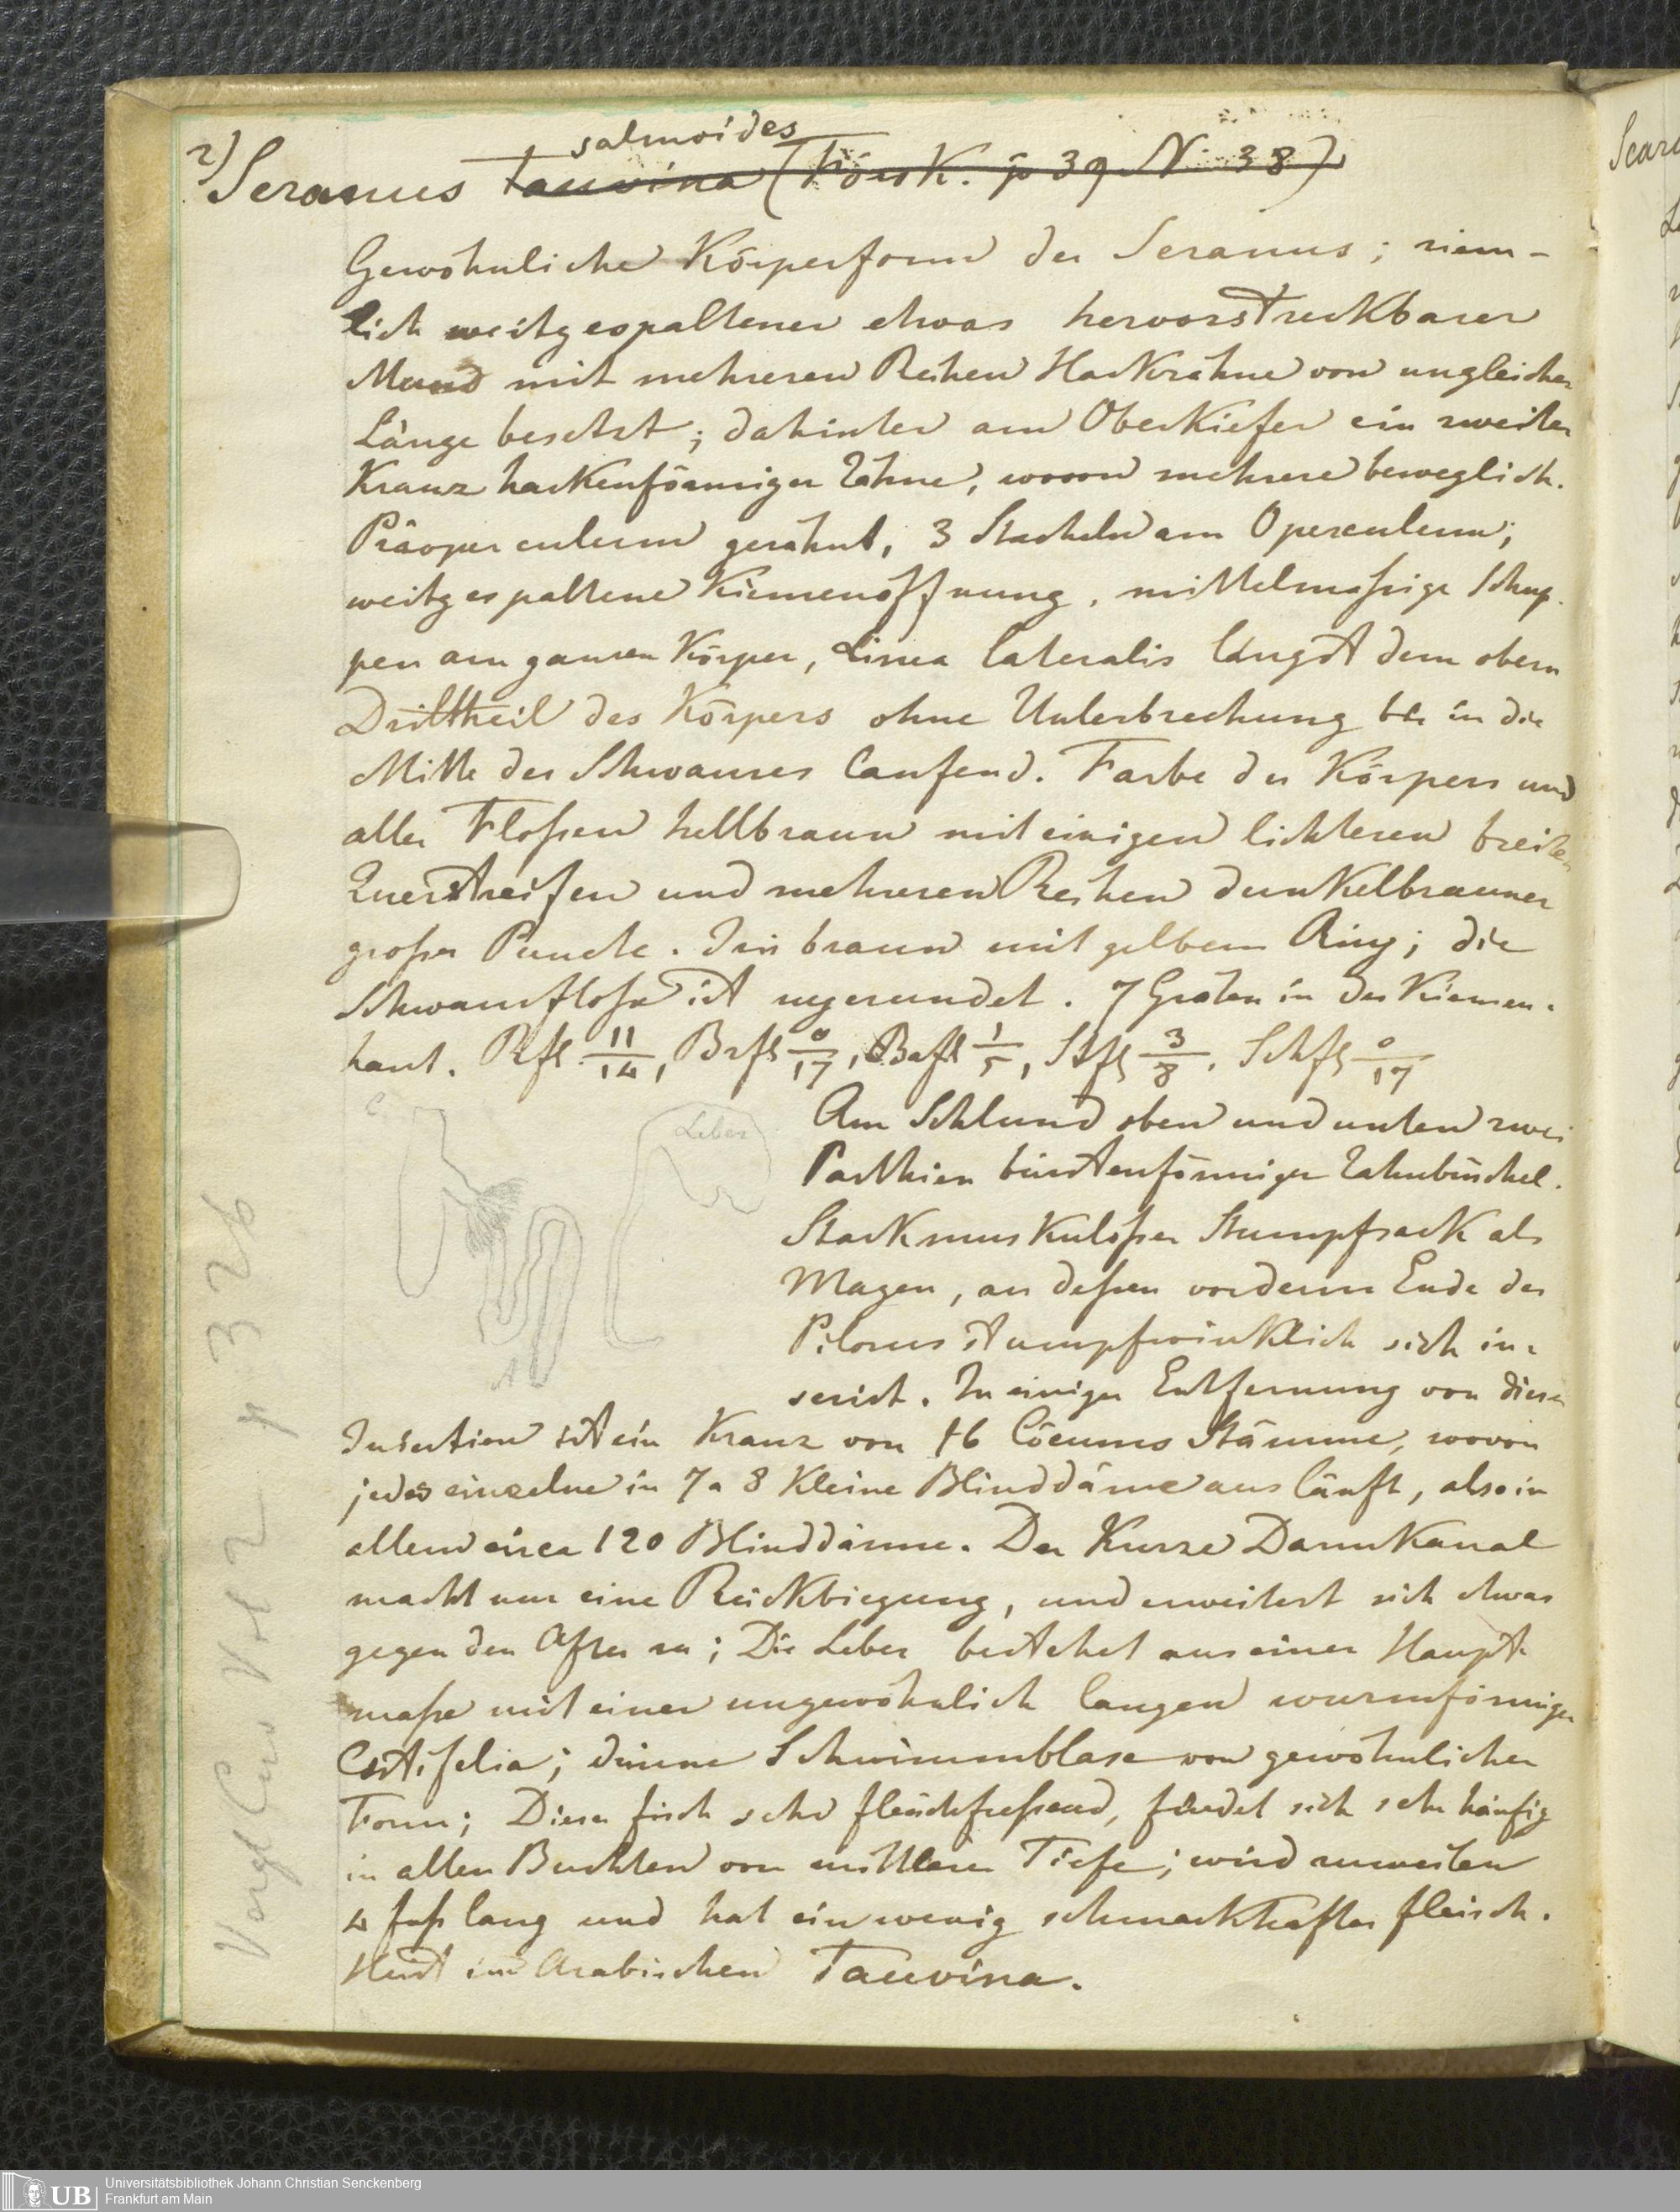 salmoides
2) Seranus Tauvina (Försk. p 39 N. 38)
Gewöhnliche Körperform der Seranus; ziem-
lich weitgespaltener etwas hervorstreckbarer
Mund mit mehreren Reihen Hackzähne von ungleicher
Länge besetzt; dahinter am Oberkiefer ein zweiter
Kranz hackenförmiger Zähne, wovon mehrere beweglich.
Präoperculum gezähnt, 3 Stacheln am Operculum;
weitgespaltene Kiemenöffnung, mittelmaßige Schup-
pen am ganzen Körper, Linea lateralis längst dem obern
Drittheil des Körpers ohne Unterbrechung bis in die
Mitte des Schwanzes laufend. Farbe des Körpers und
aller Floßen hellbraun mit einigen lichteren breiten
Querstreifen und mehreren Reihen dunkelbrauner
großer Puncte. Iris braun mit gelbem Ring; die
Schwanzfloße ist zugerundet. 7 Gräten in der Kiemen-
haut. Rfl 11/14, Brfl 0/17, Bafl 1/5, Stfl 3/8, Schfl 0/17
Leber
A
Am Schlund oben und unten zwei
Parthien bürstenförmiger Zahnbüschel.
Stark muskuloßer Stumpfsack als
Magen, an deßen vorderm Ende der
Pilorus stumpfwinklich sich in-
serirt. In einiger Entfernung von dieser
Insertion ist ein Kranz von 16 Cöcums Stämme, wovon
jedes einzelne in 7 a 8 kleine Blinddärme aus läuft, also in
allem circa 120 Blinddärme. Der kurze Darmkanal
macht nur eine Rückbiegung, und erweitert sich etwas
gegen den After zu; Die Leber bestehet aus einer Haupt
maße mit einer ungewöhnlich langen wurmförmigen
dünne Schwimmblase von gewöhnlicher
Form; Dieser fisch sehr fleischfreßend, findet sich sehr häufig
in allen Buchten von mittlerer Tiefe; wird zuweilen
4 fuß lang und hat ein wenig schmackhaftes fleisch.
Heist im Arabischen Tauvina.
Vergl Cuv Vol 2 p 326